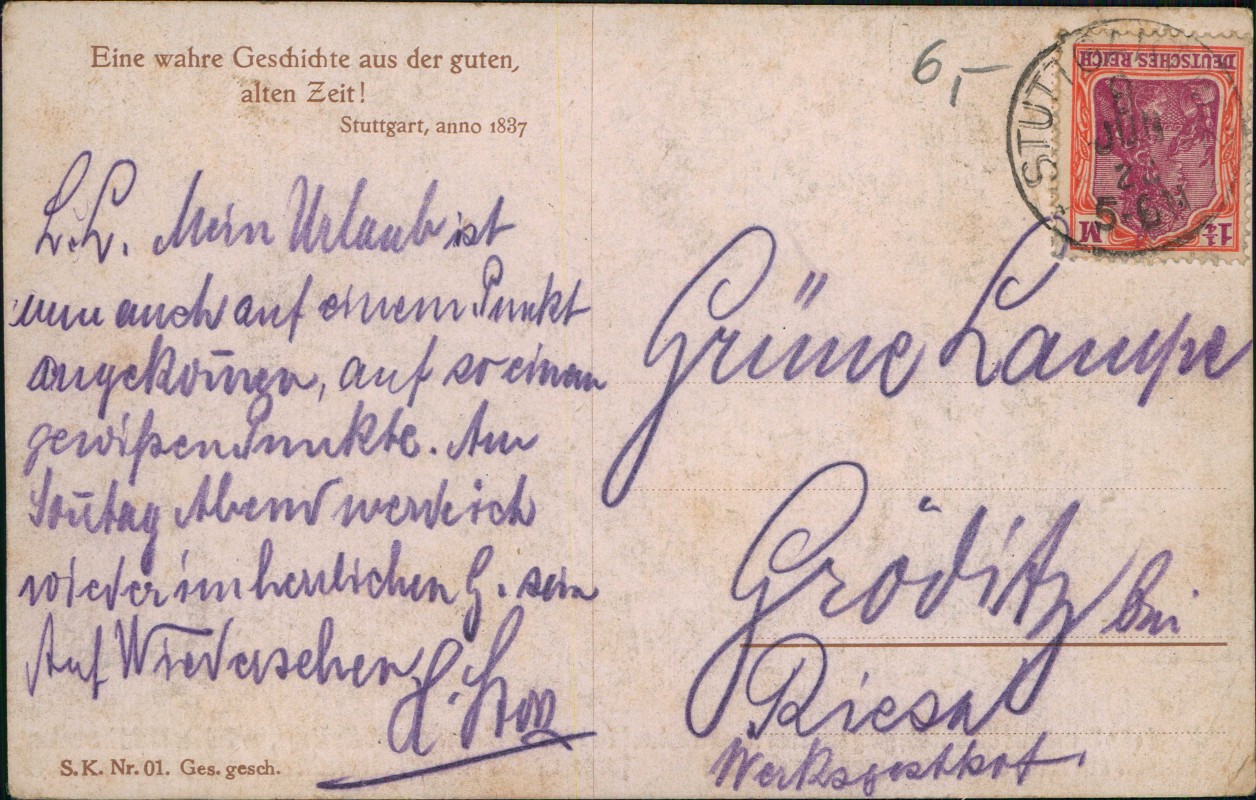 Eine wahre Geschichte aus der guten,
alten Zeit!
Stuttgart, anno 1837
L. L. Mein Urlaub ist
nun auch auf einem Punkt
angekom̄en, auf so einem
gewißen Punkte. Am
Son̄tag Abend werde ich
wieder im herrlichen G. sein
Auf Wiedersehen
S.K. Nr. 01. Ges. gesch.
6,-
DEUTSCHES REICH
1¼ M
STUTTGART
9
JUN
5-6 N
Grüne Lampe
Gröditz bei
Riesa
Werksgasthof.